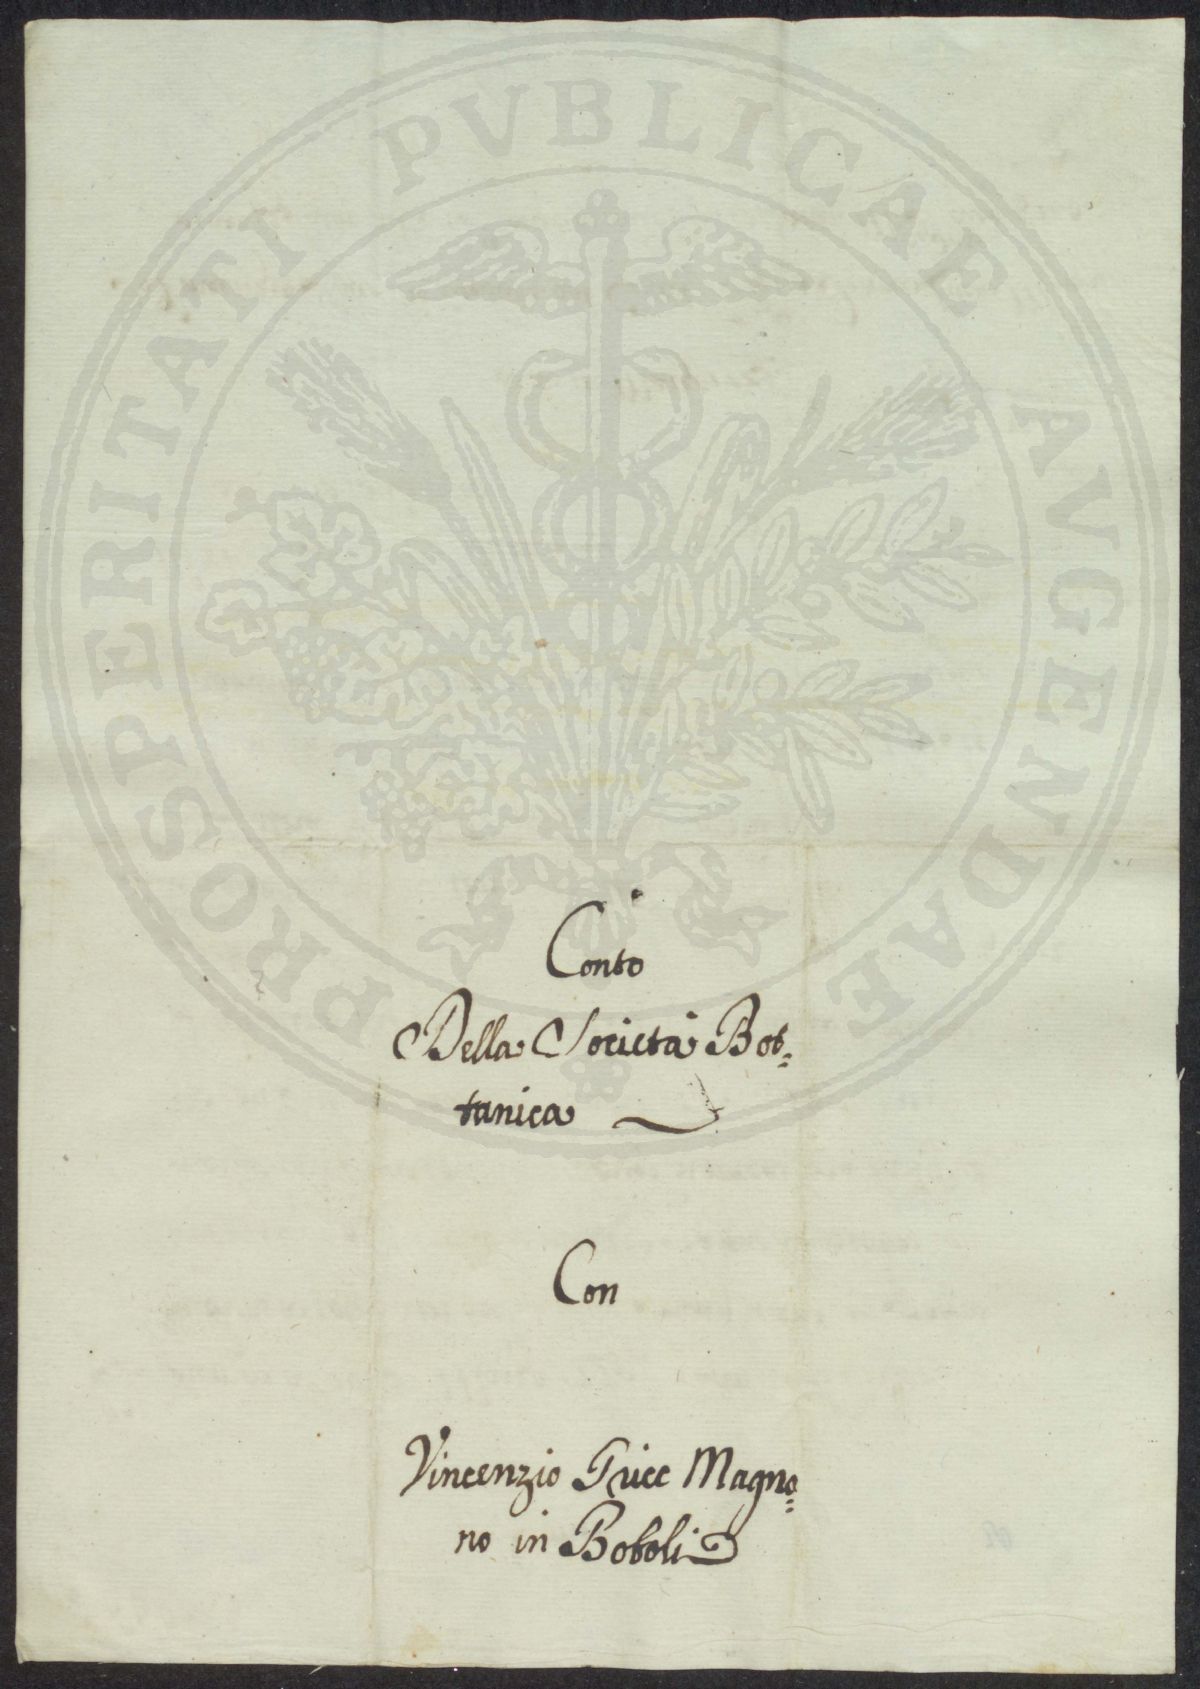 PROSPERITATI PVBLICAE AVGENDAE
Conto
Della Società Bot=
tanica
Con
Vincenzio Magna=
no in Boboli